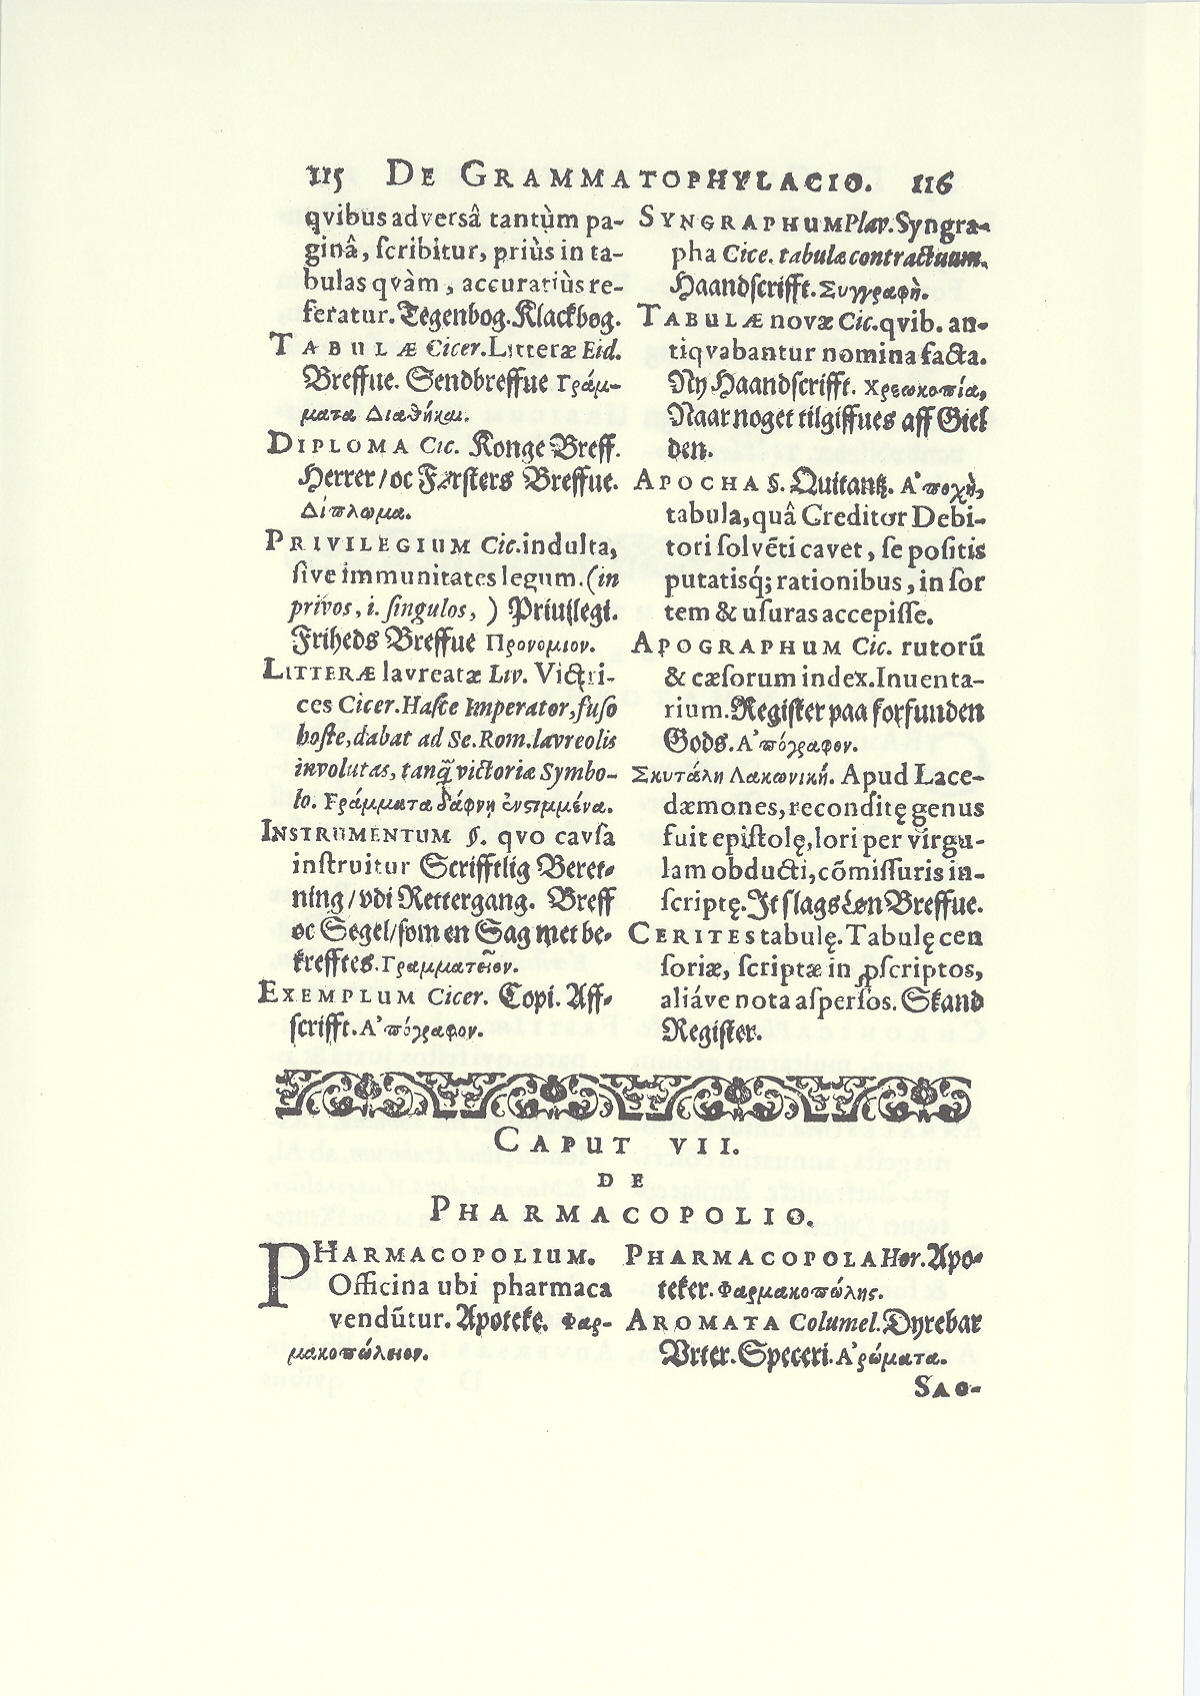 115 DE GRAMMATOPHYLACIO. 116
qvibus adversâ tantùm pa-
ginâ, ſcribitur, priùs in ta-
bulas qvàm, accuratiùs re-
feratur. Tegenbog. Klackbog.
TABULÆ Cicer. Litteræ Eid.
Breffue. Sendbreffue Γράμ-
ματα Διαθῆκαι.
DIPLOMA Cic. Konge Breff.
Herrer / oc Førſters Breffue.
Δίπλωμα.
PRIVILEGIUM Cic. indulta,
ſive immunitates legum. (in
privos, i. ſingulos, ) Priuilegi.
Friheds Breffue Προνομιον.
LITTERÆ lavreatæ Liv. Victri-
ces Cicer. Haſte Imperator, fuſo
hoſte, dabat ad Se. Rom. lavreolis
involutas, tanq̃ victoriæ Symbo-
lo. Γράμματα δάφνῃ ἐνστιμμένα.
INSTRUMENTUM ſ. qvo cavſa
inſtruitur Scrifftlig Beret-
ning / vdi Rettergang. Breff
oc Segel / ſom en Sag met be-
krefftes. Γραμματεῖον.
EXEMPLUM Cicer. Copi. Aff-
ſcrifft. Α᾽πόγραφον.
SYNGRAPHUM Plav. Syngra-
pha Cice. tabulæ contractuum.
Haandſcrifft. Συγγραφὴ.
TABULÆ novæ Cic. qvib. an-
tiqvabantur nomina facta.
Ny Haandſcrifft. Χρεωκοπία,
Naar noget tilgiffues aff Giel
den.
APOCHA S. Quitantz. Α᾽ποχὴ,
tabula, quâ Creditor Debi-
tori ſolvẽti cavet, ſe poſitis
putatisq́; rationibus, in ſor
tem & uſuras accepiſſe.
APOGRAPHUM Cic. rutorũ
& cæſorum index. Inuenta-
rium. Regiſter paa forfunden
Gods. Α᾽πόγραφον.
Σκυτάλη Λακωνική. Apud Lace-
dæmones, reconditę genus
fuit epiſtolę, lori per virgu-
lam obducti, cõmiſſuris in-
ſcriptę. It ſlags Løn Breffue.
CERITES tabulę. Tabulę cen
ſoriæ, ſcriptæ in ꝓſcriptos,
aliáve nota aſperſos. Skand
Regiſter.
CAPUT VII.
DE
PHARMACOPOLIO.
PHARMACOPOLIUM.
Officina ubi pharmaca
vendũtur. Apoteke. Φαρ-
μακοπώλειον.
PHARMACOPOLA Hor. Apo-
teker. Φαρμακοπώλης.
AROMATA Columel. Dyrebar
Vrter. Speceri. Α᾽ρώματα.
SAC-